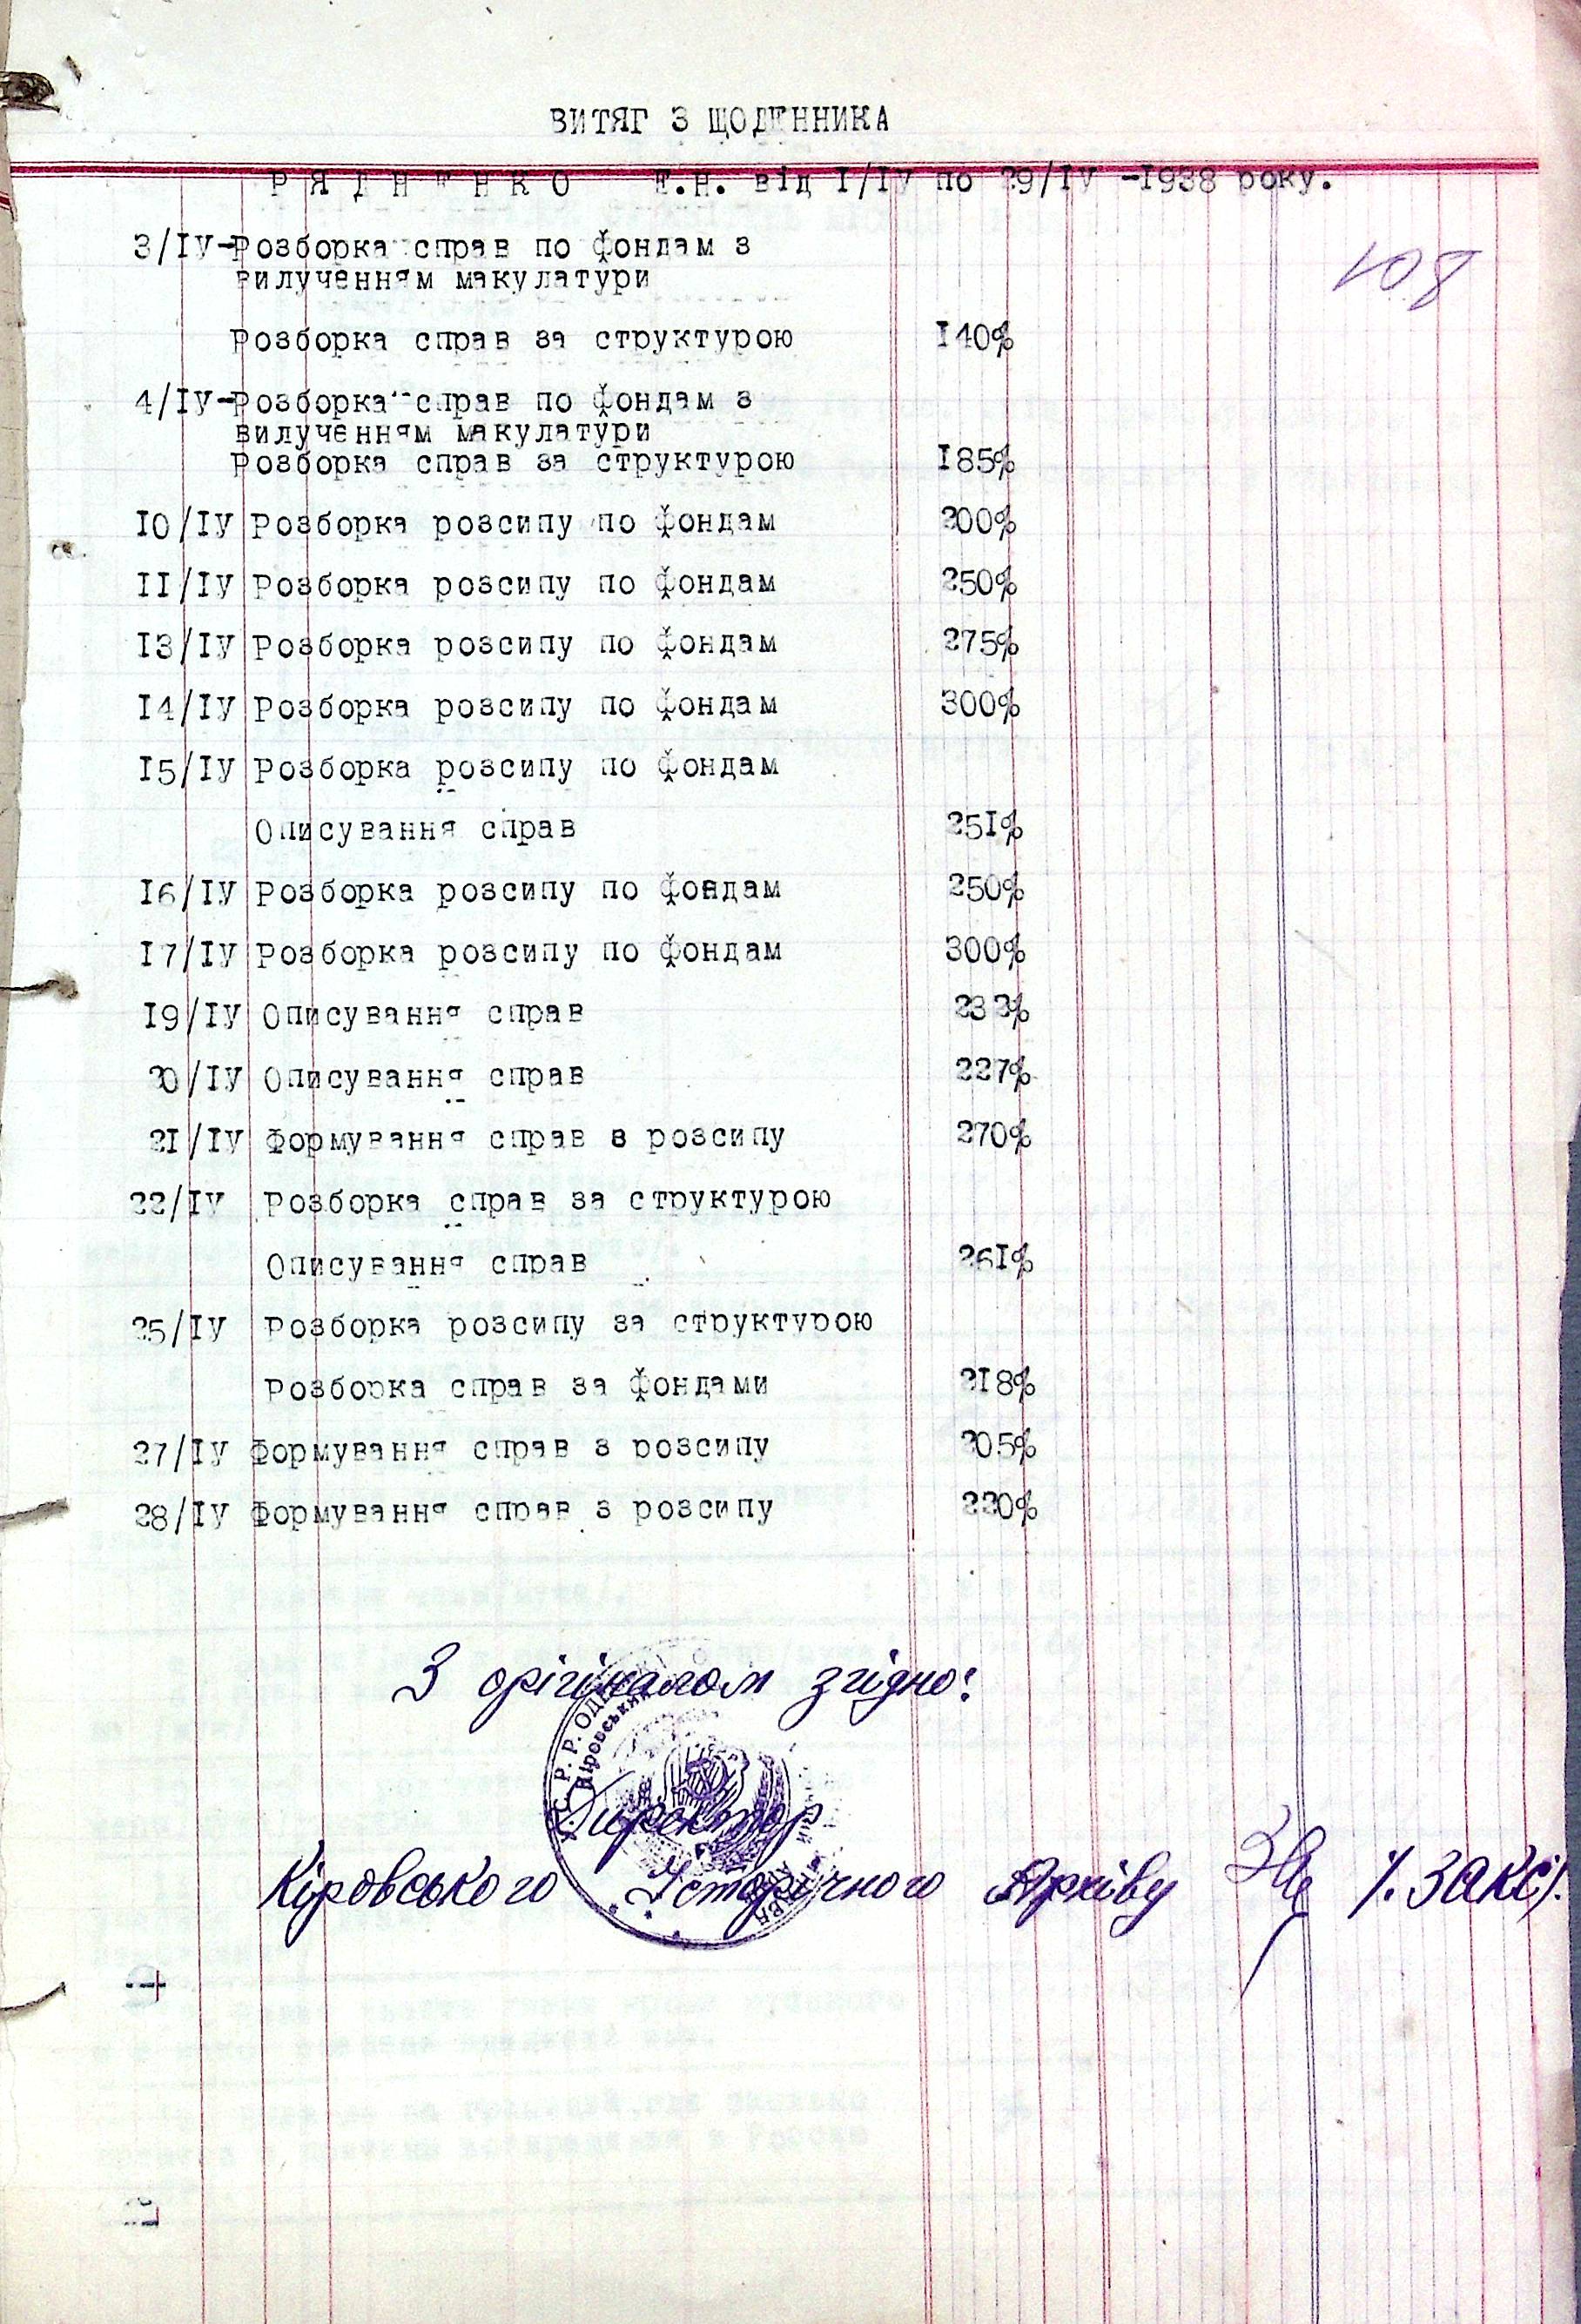 ВИТЯГ З ЩОДЕННИКА
від I/IУ по 29/IУ -1938 року.
108
3/IУ-Розборка справ по фондам з
вилученням макулатури
Розборка справ за структурою 140%
4/IУ-Розборка справ по фондам з
вилученням макулатури
Розборка справ за структурою 185%
IO/IУ Розборка розсипу по фондам 200%
II/IУ Розборка розсипу по фондам 250%
I3/IУ Розборка розсипу по фондам 275%
I4/IУ Розборка розсипу по фондам 300%
I5/IУ Розборка розсипу по фондам
Описування справ 251%
I6/IУ Розборка розсипу по фондам 250%
I7/IУ Розборка розсипу по фондам 300%
I9/IУ Описування справ 232%
20/IУ Описування справ 227%
2I/IУ Формування справ в розсипу 270%
22/IУ Розборка справ за структурою
Описування справ 261%
25/IУ Розборка розсипу за структурою
Розборка справ за фондами 218%
27/IУ Формування справ з розсипу 205%
28/IУ Формування справ з розсипу 220%
З орігіналом згідно:
Директор
Кіровського Історічного Архіву /.ЗАКС/.